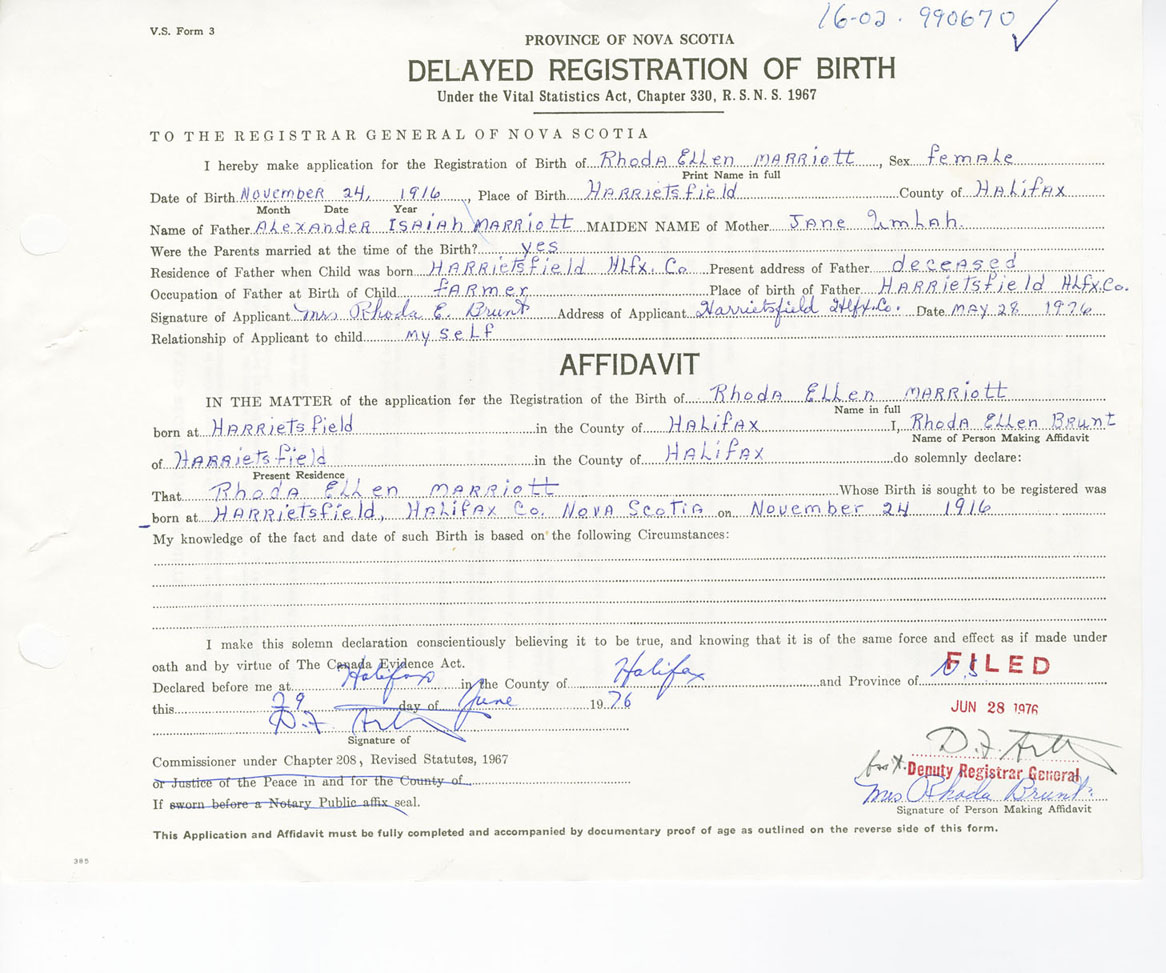 16-02. 990670 ✓
V.S. Form 3
PROVINCE OF NOVA SCOTIA
DELAYED REGISTRATION OF BIRTH
Under the Vital Statistics Act, Chapter 330, R. S. N. S. 1967
TO THE REGISTRAR GENERAL OF NOVA SCOTIA
I hereby make application for the Registration of Birth of Rhoda Ellen Marriott, Sex female
Print Name in full
Date of Birth November 24, 1916, Place of Birth Harrietsfield County of Halifax
Month Date Year
Name of Father Alexander Isaiah Marriott MAIDEN NAME of Mother Jane Umlah.
Were the Parents married at the time of the Birth? yes
Residence of Father when Child was born Harrietsfield Hlfx. Co Present address of Father deceased
Occupation of Father at Birth of Child farmer Place of birth of Father Harrietsfield Hlfx. Co.
Signature of Applicant Mrs Rhoda E. Brunt Address of Applicant Harrietsfield Hlfx. Co. Date May 28 1976
Relationship of Applicant to child my self
AFFIDAVIT
IN THE MATTER of the application for the Registration of the Birth of Rhoda Ellen Marriott
Name in full
born at Harrietsfield in the County of Halifax I, Rhoda Ellen Brunt
Name of Person Making Affidavit
of Harrietsfield in the County of Halifax do solemnly declare:
Present Residence
That Rhoda Ellen Marriott Whose Birth is sought to be registered was
born at Harrietsfield, Halifax Co. Nova Scotia on November 24 1916
My knowledge of the fact and date of such Birth is based on the following Circumstances:
I make this solemn declaration conscientiously believing it to be true, and knowing that it is of the same force and effect as if made under
oath and by virtue of The Canada Evidence Act.
FILED
Declared before me at Halifax in the County of Halifax and Province of N.S
this 29 day of June 1976
JUN 28 1976
D.F.
Signature of
D.F.
Commissioner under Chapter 208, Revised Statutes, 1967
for Deputy Registrar General
or Justice of the Peace in and for the County of
Mrs Rhoda Brunt
If sworn before a Notary Public affix seal.
Signature of Person Making Affidavit
This Application and Affidavit must be fully completed and accompanied by documentary proof of age as outlined on the reverse side of this form.
385